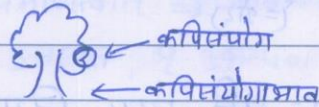 कपिसंयोग
कपिसंयोगाभाव